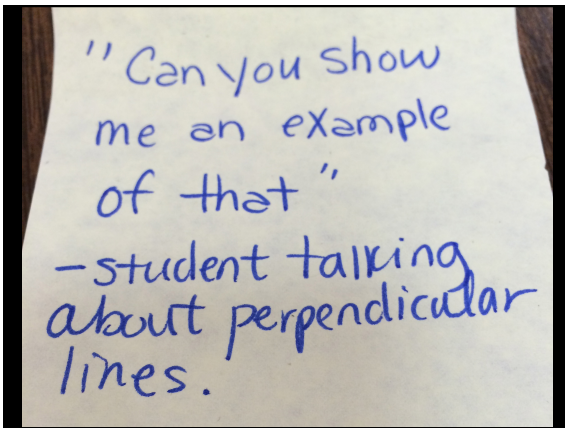 "Can you show
me an example
of that"
-student talking
about perpendicular
lines.